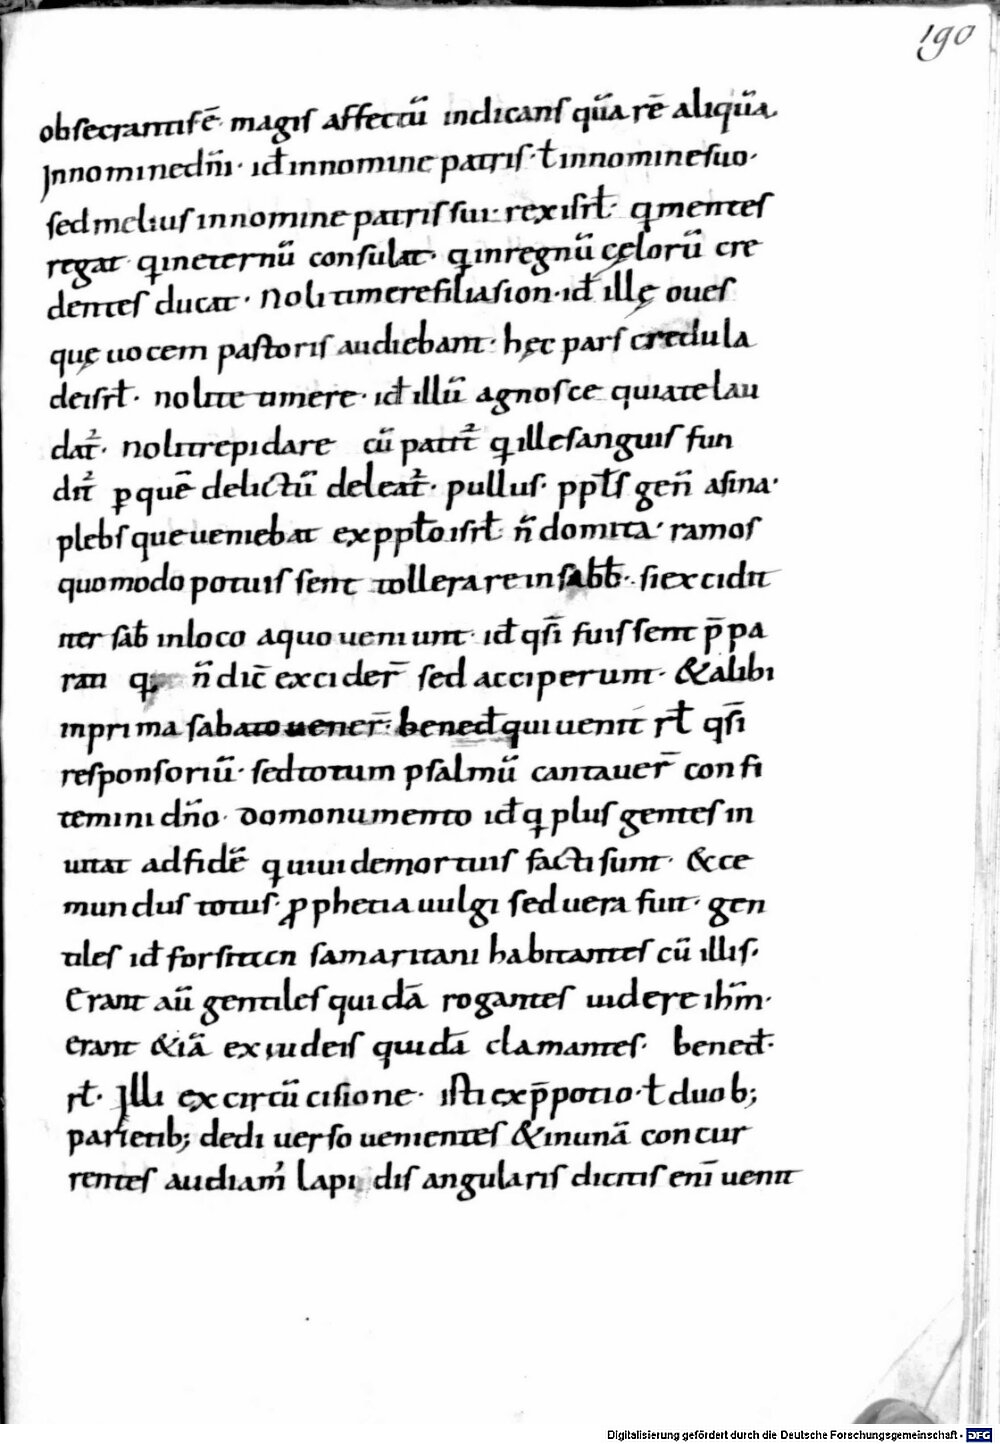 190
obsecrantis ē· magis affectū indicans quā rē aliquā.
In nomine dn̄i· id̄ in nomine patris· ł in nomine suo·
sed melius in nomine patris sui· rex isrł· q mentes
regat· q in eternū consulat· q in regnū cęlorū cre
dentes ducat· Noli timere filia sion· id̄ illę oues
quę uocem pastoris audiebant· hęc pars credula
de isrł· nolite timere· id̄ illū agnosce qui a te lau
dat᷑· noli trepidare cū patit᷑ q ille sanguis fun
dit᷑ p quē delictū deleat᷑· pullus· ppłs gen̄ asina·
plebs que ueniebat ex ppło isrł· n̄ domita· ramos
quomodo potuissent tollerare in sabb̄· si excidit
iter sab̄ in loco a quo ueniunt· id̄ qsī fuissent p̄pa
rati q n̄ dic̄ excider̄ sed acciperunt· & alibi
in prima sabato uener̄· bened̄ qui uenit rł qsī
responsoriū· sed totum psalmū cantauer̄ confi
temini dn̄o· do monumento id̄ q plus gentes in
uitat ad fidē q uiui de mortuis facti sunt· & ce
mundus totus· ꝓphetia uulgi sed uera fuit· gen
tiles id̄ forsitan samaritani habitantes cū illis·
Erant aū gentiles quidā rogantes uidere ihm̄·
erant & iā ex iudeis quidā clamantes· bened̄·
rł· Illi ex circūcisione· isti ex p̄potio· ł duob;
parietib; de diuerso uenientes & in unā concur
rentes audiam᷒ lapidis angularis dictis enī uenit
Digitalisierung gefördert durch die Deutsche Forschungsgemeinschaft - DFG